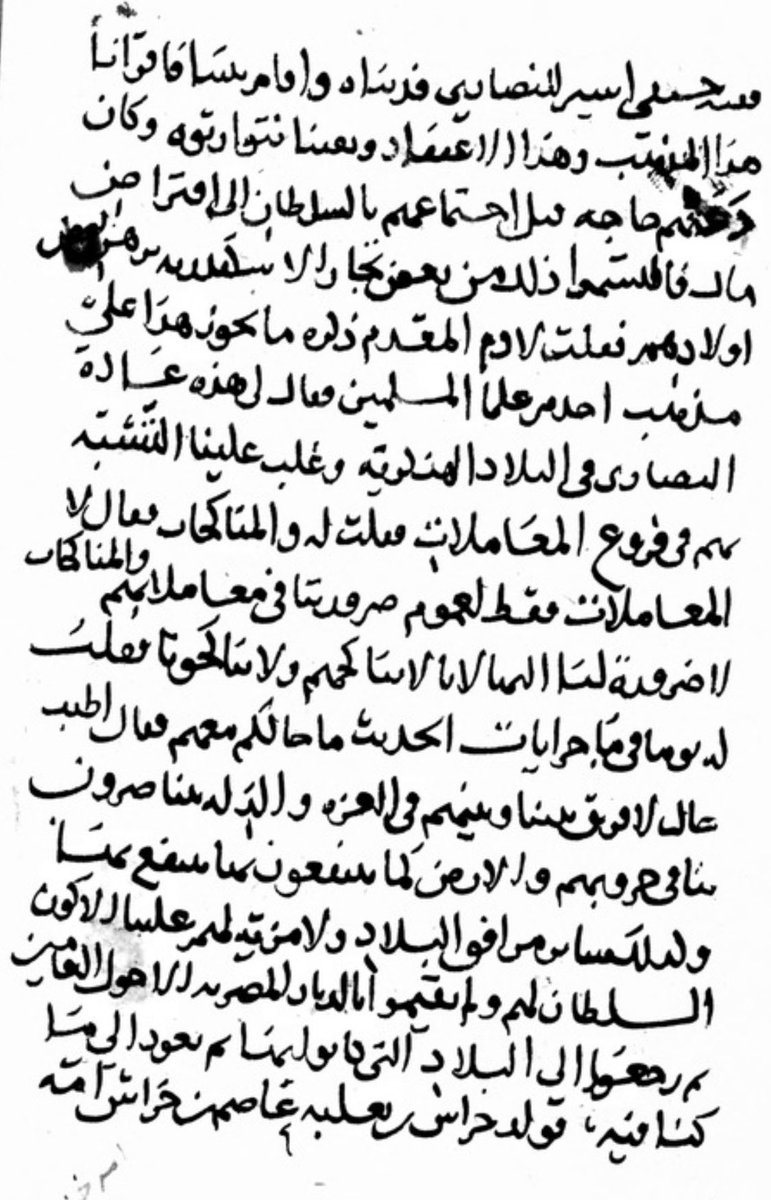 فقيه حنفي اسير للنصارى فديناه واقام بيننا فاقرأنا
هذا المذهب وهذا الاعتقاد وبقينا نتوارثه وكان
دعتهم حاجه قبل اجتماعهم بالسلطان الى اقتراض
مال فالتمسوا ذلك من بعض تجار الاسكندريه
اولادهم فقلت لادم المقدم ذكره ما يجوز هذا على
مذهب احد من علما المسلمين فقال لي هذه عادة
النصارى في البلاد الهنكرية وغلب علينا التشبه
بهم في فروع المعاملات فقلت له والمناكحات فقال لا
المعاملات فقط لعموم ضرورتنا في معاملاتهم والمناكحات
لا ضرورة لنا اليها لانا لا نناكحهم ولا يناكحونا فقلت
له يوما في ماجرايات الحديث ما حالكم معهم فقال اطيب
حال لا فرق بيننا وبينهم في العزه والذله يتناصرون
بنا في حروبهم والارض كما ينتفعون بها ننتفع بها
وكذلك من مرافق البلاد ولا مزية لهم علينا الا كون
السلطان لهم ولم يقيموا بالديار المصريه الا حول العامين
ثم رجعوا الى البلاد التي كانوا بها ثم نعود الى ما
كنا فيه، قوله خراش عاصم من خراش امه